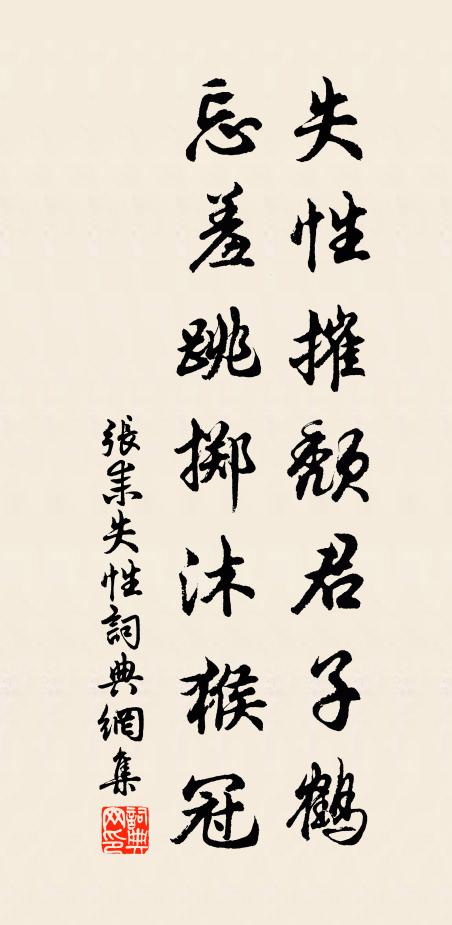 失性摧頹君子鶴
忘羞跳擲沐猴冠
張耒失性詞典網集
詞典网印